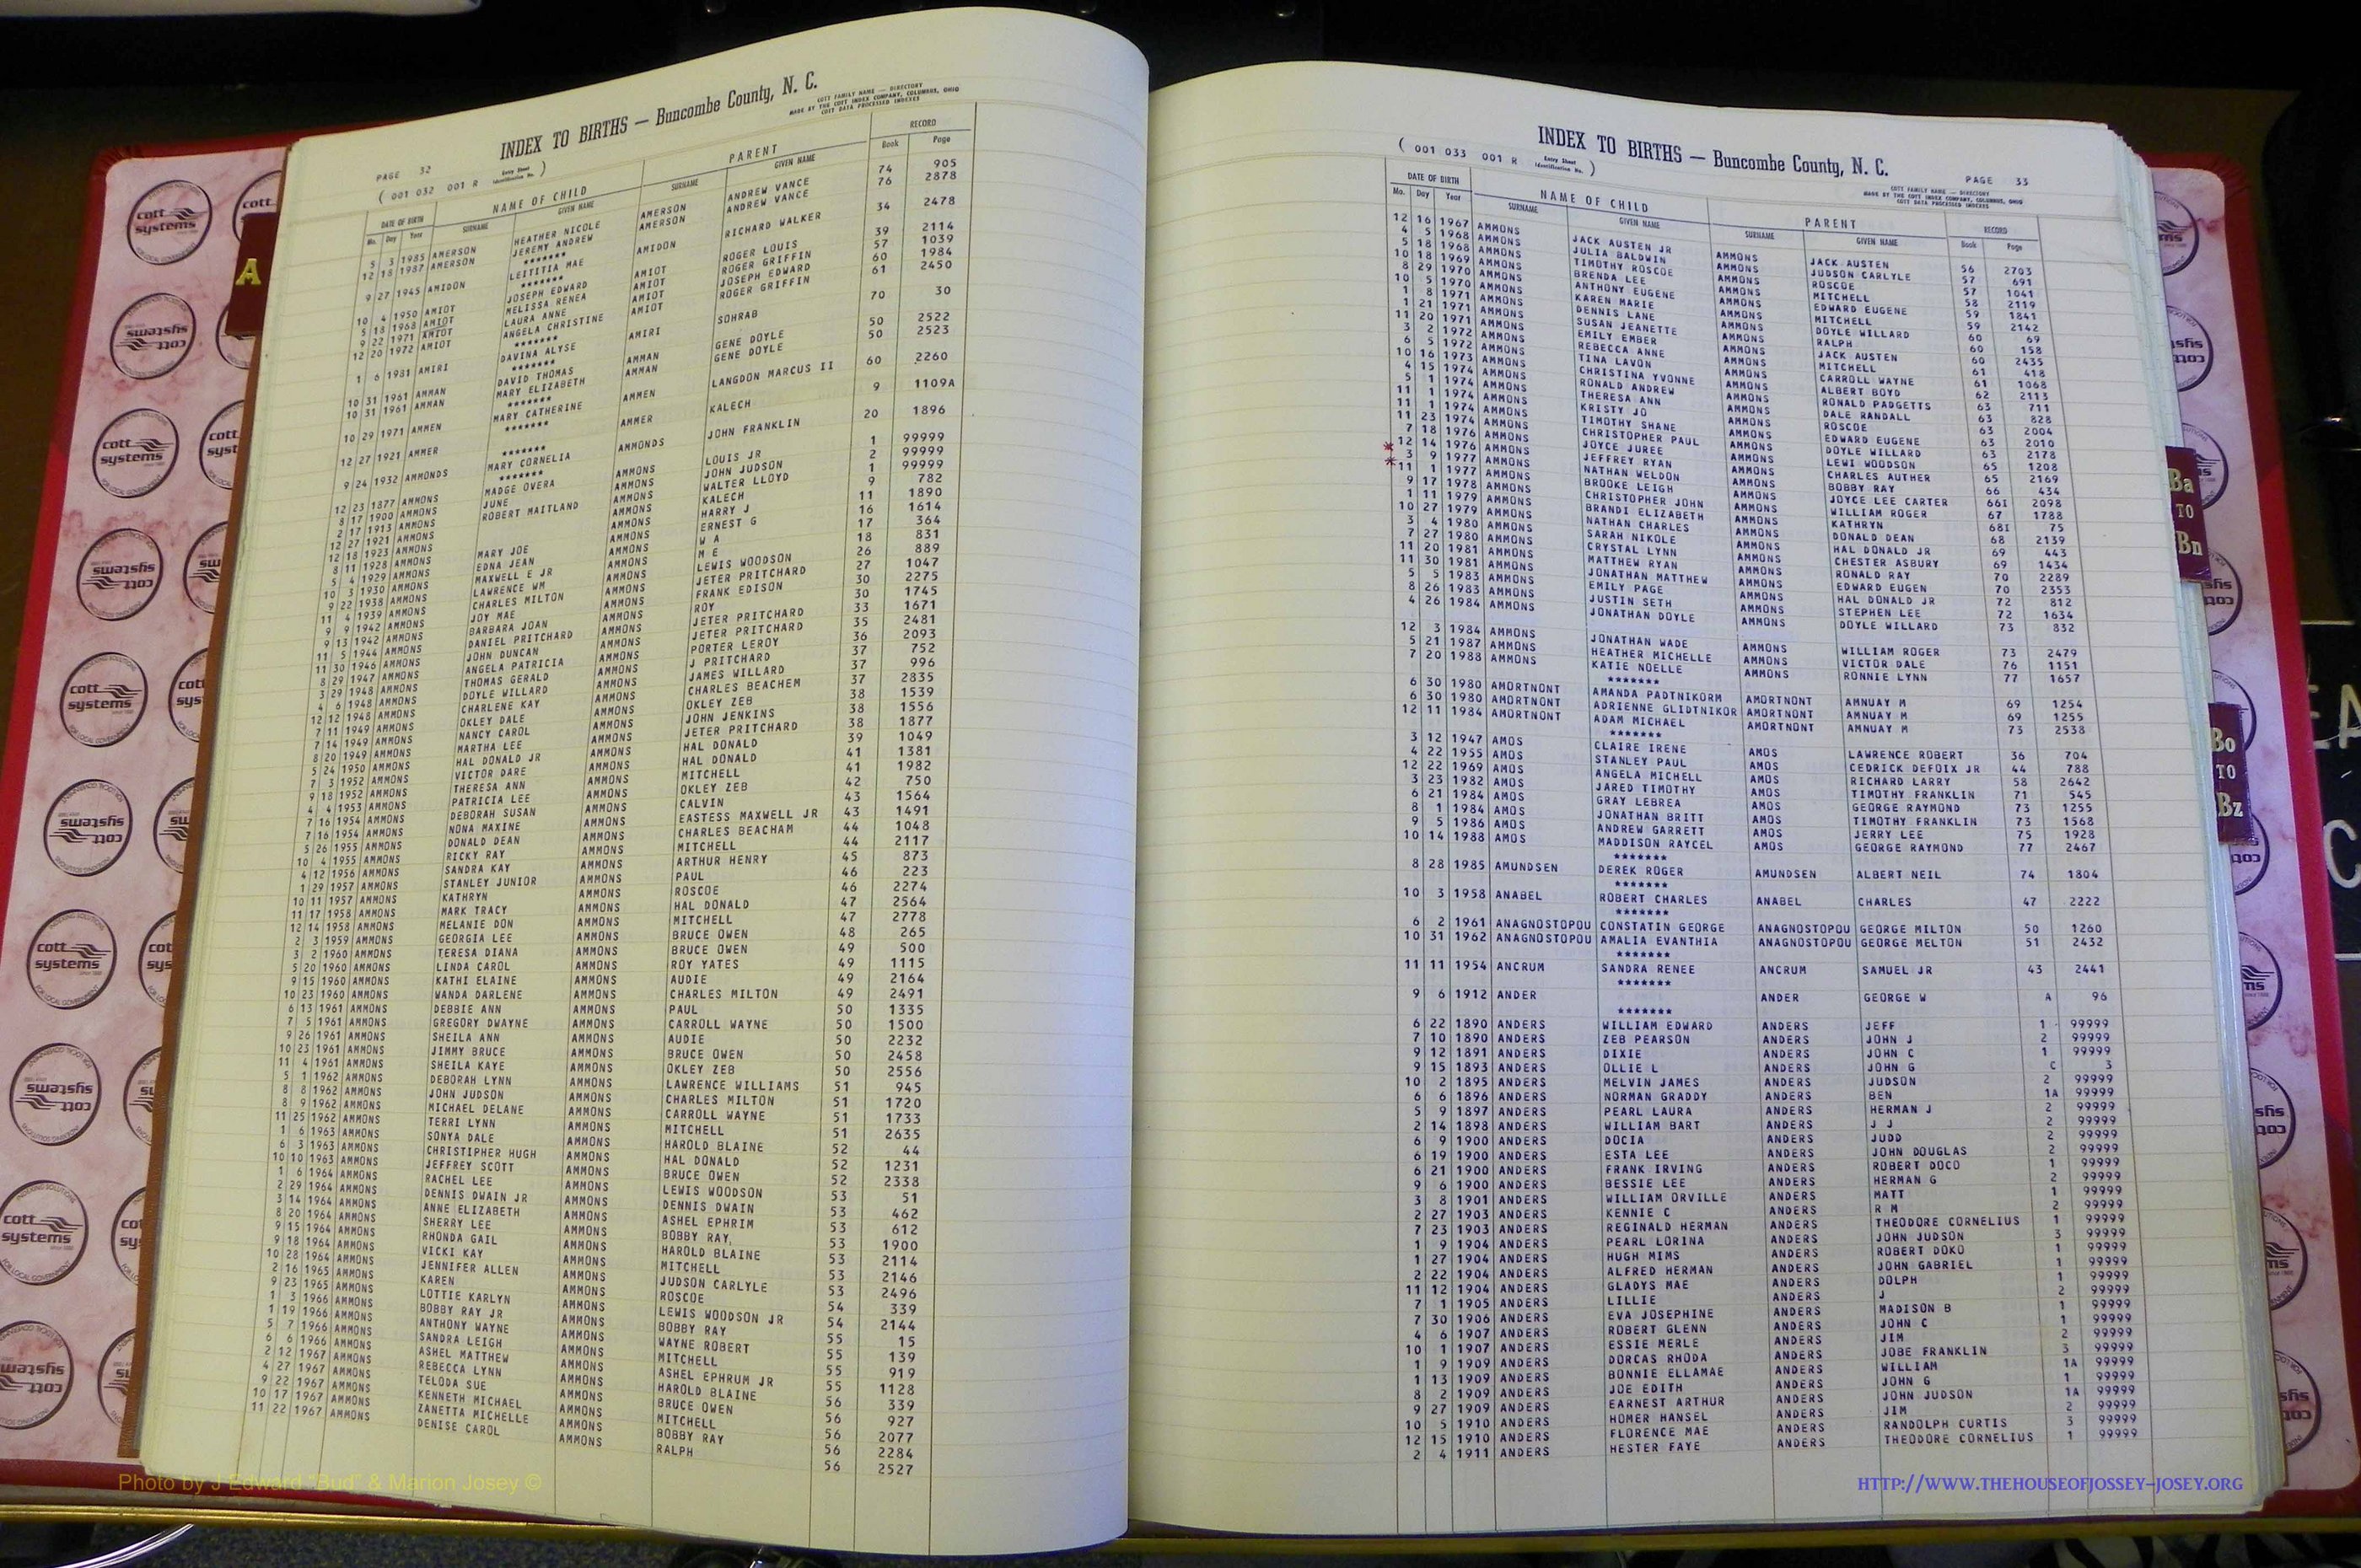 INDEX TO BIRTHS — Buncombe County, N. C.
COTT FAMILY NAME — DIRECTORY
MADE BY THE COTT INDEX COMPANY, COLUMBUS, OHIO
COTT DATA PROCESSED INDEXES
PAGE 32
( 001 032 001 R Entry Sheet Identification No. )
DATE OF BIRTH NAME OF CHILD PARENT RECORD
Mo. Day Year SURNAME GIVEN NAME SURNAME GIVEN NAME Book Page
5 3 1985 AMERSON HEATHER NICOLE AMERSON ANDREW VANCE 74 905
12 18 1987 AMERSON JEREMY ANDREW AMERSON ANDREW VANCE 76 2878
*******
9 27 1945 AMIDON LEITITIA MAE AMIDON RICHARD WALKER 34 2478
******
10 4 1950 AMIOT JOSEPH EDWARD AMIOT ROGER LOUIS 39 2114
5 18 1968 AMIOT MELISSA RENEA AMIOT ROGER GRIFFIN 57 1039
9 22 1971 AMIOT LAURA ANNE AMIOT JOSEPH EDWARD 60 1984
12 20 1972 AMIOT ANGELA CHRISTINE AMIOT ROGER GRIFFIN 61 2450
*******
1 6 1981 AMIRI DAVINA ALYSE AMIRI SOHRAB 70 30
*******
10 31 1961 AMMAN DAVID THOMAS AMMAN GENE DOYLE 50 2522
10 31 1961 AMMAN MARY ELIZABETH AMMAN GENE DOYLE 50 2523
*******
10 29 1971 AMMEN MARY CATHERINE AMMEN LANGDON MARCUS II 60 2260
*******
12 27 1921 AMMER AMMER KALECH 9 1109A
*******
9 24 1932 AMMONDS MARY CORNELIA AMMONDS JOHN FRANKLIN 20 1896
*******
12 23 1877 AMMONS MADGE OVERA AMMONS LOUIS JR 1 99999
8 17 1900 AMMONS JUNE AMMONS JOHN JUDSON 2 99999
2 17 1913 AMMONS ROBERT MAITLAND AMMONS WALTER LLOYD 1 99999
12 27 1921 AMMONS AMMONS KALECH 9 782
12 18 1923 AMMONS AMMONS HARRY J 11 1890
8 11 1928 AMMONS MARY JOE AMMONS ERNEST G 16 1614
5 4 1929 AMMONS EDNA JEAN AMMONS W A 17 364
10 3 1930 AMMONS MAXWELL E JR AMMONS M E 18 831
9 22 1938 AMMONS LAWRENCE WM AMMONS LEWIS WOODSON 26 889
11 4 1939 AMMONS CHARLES MILTON AMMONS JETER PRITCHARD 27 1047
9 9 1942 AMMONS JOY MAE AMMONS FRANK EDISON 30 2275
9 13 1942 AMMONS BARBARA JOAN AMMONS ROY 30 1745
11 5 1944 AMMONS DANIEL PRITCHARD AMMONS JETER PRITCHARD 33 1671
11 30 1946 AMMONS JOHN DUNCAN AMMONS JETER PRITCHARD 35 2481
8 29 1947 AMMONS ANGELA PATRICIA AMMONS PORTER LEROY 36 2093
3 29 1948 AMMONS THOMAS GERALD AMMONS J PRITCHARD 37 752
4 6 1948 AMMONS DOYLE WILLARD AMMONS JAMES WILLARD 37 996
12 12 1948 AMMONS CHARLENE KAY AMMONS CHARLES BEACHEM 37 2835
7 11 1949 AMMONS OKLEY DALE AMMONS OKLEY ZEB 38 1539
7 14 1949 AMMONS NANCY CAROL AMMONS JOHN JENKINS 38 1556
8 20 1949 AMMONS MARTHA LEE AMMONS JETER PRITCHARD 38 1877
5 24 1950 AMMONS HAL DONALD JR AMMONS HAL DONALD 39 1049
7 3 1952 AMMONS VICTOR DARE AMMONS HAL DONALD 41 1381
9 18 1952 AMMONS THERESA ANN AMMONS MITCHELL 41 1982
4 4 1953 AMMONS PATRICIA LEE AMMONS OKLEY ZEB 42 750
7 16 1954 AMMONS DEBORAH SUSAN AMMONS CALVIN 43 1564
7 16 1954 AMMONS NONA MAXINE AMMONS EASTESS MAXWELL JR 43 1491
5 26 1955 AMMONS DONALD DEAN AMMONS CHARLES BEACHAM 44 1048
10 4 1955 AMMONS RICKY RAY AMMONS MITCHELL 44 2117
4 12 1956 AMMONS SANDRA KAY AMMONS ARTHUR HENRY 45 873
1 29 1957 AMMONS STANLEY JUNIOR AMMONS PAUL 46 223
10 11 1957 AMMONS KATHRYN AMMONS ROSCOE 46 2274
11 17 1958 AMMONS MARK TRACY AMMONS HAL DONALD 47 2564
12 14 1958 AMMONS MELANIE DON AMMONS MITCHELL 47 2778
2 3 1959 AMMONS GEORGIA LEE AMMONS BRUCE OWEN 48 265
3 2 1960 AMMONS TERESA DIANA AMMONS BRUCE OWEN 49 500
5 20 1960 AMMONS LINDA CAROL AMMONS ROY YATES 49 1115
9 15 1960 AMMONS KATHI ELAINE AMMONS AUDIE 49 2164
10 23 1960 AMMONS WANDA DARLENE AMMONS CHARLES MILTON 49 2491
6 13 1961 AMMONS DEBBIE ANN AMMONS PAUL 50 1335
7 5 1961 AMMONS GREGORY DWAYNE AMMONS CARROLL WAYNE 50 1500
9 26 1961 AMMONS SHEILA ANN AMMONS AUDIE 50 2232
10 23 1961 AMMONS JIMMY BRUCE AMMONS BRUCE OWEN 50 2458
11 4 1961 AMMONS SHEILA KAYE AMMONS OKLEY ZEB 50 2556
5 1 1962 AMMONS DEBORAH LYNN AMMONS LAWRENCE WILLIAMS 51 945
8 8 1962 AMMONS JOHN JUDSON AMMONS CHARLES MILTON 51 1720
8 9 1962 AMMONS MICHAEL DELANE AMMONS CARROLL WAYNE 51 1733
11 25 1962 AMMONS TERRI LYNN AMMONS MITCHELL 51 2635
1 6 1963 AMMONS SONYA DALE AMMONS HAROLD BLAINE 52 44
6 3 1963 AMMONS CHRISTOPHER HUGH AMMONS HAL DONALD 52 1231
10 10 1963 AMMONS JEFFREY SCOTT AMMONS BRUCE OWEN 52 2338
1 6 1964 AMMONS RACHEL LEE AMMONS LEWIS WOODSON 53 51
2 29 1964 AMMONS DENNIS DWAIN JR AMMONS DENNIS DWAIN 53 462
3 14 1964 AMMONS ANNE ELIZABETH AMMONS ASHEL EPHRIM 53 612
8 20 1964 AMMONS SHERRY LEE AMMONS BOBBY RAY 53 1900
9 15 1964 AMMONS RHONDA GAIL AMMONS HAROLD BLAINE 53 2114
9 18 1964 AMMONS VICKI KAY AMMONS MITCHELL 53 2146
10 28 1964 AMMONS JENNIFER ALLEN AMMONS JUDSON CARLYLE 53 2496
2 16 1965 AMMONS KAREN AMMONS ROSCOE 54 339
9 23 1965 AMMONS LOTTIE KARLYN AMMONS LEWIS WOODSON JR 54 2144
1 3 1966 AMMONS BOBBY RAY JR AMMONS BOBBY RAY 55 15
1 19 1966 AMMONS ANTHONY WAYNE AMMONS WAYNE ROBERT 55 139
5 7 1966 AMMONS SANDRA LEIGH AMMONS MITCHELL 55 919
6 6 1966 AMMONS ASHEL MATTHEW AMMONS ASHEL EPHRUM JR 55 1128
2 12 1967 AMMONS REBECCA LYNN AMMONS HAROLD BLAINE 56 339
4 27 1967 AMMONS TELODA SUE AMMONS BRUCE OWEN 56 927
9 22 1967 AMMONS KENNETH MICHAEL AMMONS MITCHELL 56 2077
10 17 1967 AMMONS ZANETTA MICHELLE AMMONS BOBBY RAY 56 2284
11 22 1967 AMMONS DENISE CAROL AMMONS RALPH 56 2527
INDEX TO BIRTHS — Buncombe County, N. C.
( 001 033 001 R Entry Sheet Identification No. )
PAGE 33
COTT FAMILY NAME — DIRECTORY
MADE BY THE COTT INDEX COMPANY, COLUMBUS, OHIO
COTT DATA PROCESSED INDEXES
DATE OF BIRTH NAME OF CHILD PARENT RECORD
Mo. Day Year SURNAME GIVEN NAME SURNAME GIVEN NAME Book Page
12 16 1967 AMMONS JACK AUSTEN JR AMMONS JACK AUSTEN 56 2703
4 5 1968 AMMONS JULIA BALDWIN AMMONS JUDSON CARLYLE 57 691
5 18 1968 AMMONS TIMOTHY ROSCOE AMMONS ROSCOE 57 1041
10 18 1969 AMMONS BRENDA LEE AMMONS MITCHELL 58 2119
8 29 1970 AMMONS ANTHONY EUGENE AMMONS EDWARD EUGENE 59 1841
10 5 1970 AMMONS KAREN MARIE AMMONS MITCHELL 59 2142
1 8 1971 AMMONS DENNIS LANE AMMONS DOYLE WILLARD 60 69
1 21 1971 AMMONS SUSAN JEANETTE AMMONS RALPH 60 158
11 20 1971 AMMONS EMILY EMBER AMMONS JACK AUSTEN 60 2435
3 2 1972 AMMONS REBECCA ANNE AMMONS MITCHELL 61 418
6 5 1972 AMMONS TINA LAVON AMMONS CARROLL WAYNE 61 1068
10 16 1973 AMMONS CHRISTINA YVONNE AMMONS ALBERT BOYD 62 2113
4 15 1974 AMMONS RONALD ANDREW AMMONS RONALD PADGETTS 63 711
5 1 1974 AMMONS THERESA ANN AMMONS DALE RANDALL 63 828
11 1 1974 AMMONS KRISTY JO AMMONS ROSCOE 63 2004
11 1 1974 AMMONS TIMOTHY SHANE AMMONS EDWARD EUGENE 63 2010
11 23 1974 AMMONS CHRISTOPHER PAUL AMMONS DOYLE WILLARD 63 2178
7 18 1976 AMMONS JOYCE JUREE AMMONS LEWI WOODSON 65 1208
* 12 14 1976 AMMONS JEFFREY RYAN AMMONS CHARLES AUTHER 65 2169
3 9 1977 AMMONS NATHAN WELDON AMMONS BOBBY RAY 66 434
* 11 1 1977 AMMONS BROOKE LEIGH AMMONS JOYCE LEE CARTER 66I 2098
9 17 1978 AMMONS CHRISTOPHER JOHN AMMONS WILLIAM ROGER 67 1788
1 11 1979 AMMONS BRANDI ELIZABETH AMMONS KATHRYN 68I 75
10 27 1979 AMMONS NATHAN CHARLES AMMONS DONALD DEAN 68 2139
3 4 1980 AMMONS SARAH NIKOLE AMMONS HAL DONALD JR 69 443
7 27 1980 AMMONS CRYSTAL LYNN AMMONS CHESTER ASBURY 69 1434
11 20 1981 AMMONS MATTHEW RYAN AMMONS RONALD RAY 70 2289
11 30 1981 AMMONS JONATHAN MATTHEW AMMONS EDWARD EUGEN 70 2353
5 5 1983 AMMONS EMILY PAGE AMMONS HAL DONALD JR 72 812
8 26 1983 AMMONS JUSTIN SETH AMMONS STEPHEN LEE 72 1634
4 26 1984 AMMONS JONATHAN DOYLE AMMONS DOYLE WILLARD 73 832
12 3 1984 AMMONS JONATHAN WADE AMMONS WILLIAM ROGER 73 2479
5 21 1987 AMMONS HEATHER MICHELLE AMMONS VICTOR DALE 76 1151
7 20 1988 AMMONS KATIE NOELLE AMMONS RONNIE LYNN 77 1657
*******
6 30 1980 AMORTNONT AMANDA PADTNIKORM AMORTNONT AMNUAY M 69 1254
6 30 1980 AMORTNONT ADRIENNE GLIDTNIKOR AMORTNONT AMNUAY M 69 1255
12 11 1984 AMORTNONT ADAM MICHAEL AMORTNONT AMNUAY M 73 2538
*******
3 12 1947 AMOS CLAIRE IRENE AMOS LAWRENCE ROBERT 36 704
4 22 1955 AMOS STANLEY PAUL AMOS CEDRICK DEFOIX JR 44 788
12 22 1969 AMOS ANGELA MICHELL AMOS RICHARD LARRY 58 2642
3 23 1982 AMOS JARED TIMOTHY AMOS TIMOTHY FRANKLIN 71 545
6 21 1984 AMOS GRAY LEBREA AMOS GEORGE RAYMOND 73 1255
8 1 1984 AMOS JONATHAN BRITT AMOS TIMOTHY FRANKLIN 73 1568
9 5 1986 AMOS ANDREW GARRETT AMOS JERRY LEE 75 1928
10 14 1988 AMOS MADDISON RAYCEL AMOS GEORGE RAYMOND 77 2467
*******
8 28 1985 AMUNDSEN DEREK ROGER AMUNDSEN ALBERT NEIL 74 1804
*******
10 3 1958 ANABEL ROBERT CHARLES ANABEL CHARLES 47 2222
*******
6 2 1961 ANAGNOSTOPOU CONSTATIN GEORGE ANAGNOSTOPOU GEORGE MILTON 50 1260
10 31 1962 ANAGNOSTOPOU AMALIA EVANTHIA ANAGNOSTOPOU GEORGE MELTON 51 2432
*******
11 11 1954 ANCRUM SANDRA RENEE ANCRUM SAMUEL JR 43 2441
*******
9 6 1912 ANDER ANDER GEORGE W A 96
*******
6 22 1890 ANDERS WILLIAM EDWARD ANDERS JEFF 1 99999
7 10 1890 ANDERS ZEB PEARSON ANDERS JOHN J 2 99999
9 12 1891 ANDERS DIXIE ANDERS JOHN C 1 99999
9 15 1893 ANDERS OLLIE L ANDERS JOHN G C 3
10 2 1895 ANDERS MELVIN JAMES ANDERS JUDSON 2 99999
6 6 1896 ANDERS NORMAN GRADDY ANDERS BEN 1A 99999
5 9 1897 ANDERS PEARL LAURA ANDERS HERMAN J 2 99999
2 14 1898 ANDERS WILLIAM BART ANDERS J J 2 99999
6 9 1900 ANDERS DOCIA ANDERS JUDD 2 99999
6 19 1900 ANDERS ESTA LEE ANDERS JOHN DOUGLAS 2 99999
6 21 1900 ANDERS FRANK IRVING ANDERS ROBERT DOCO 1 99999
9 6 1900 ANDERS BESSIE LEE ANDERS HERMAN G 2 99999
3 8 1901 ANDERS WILLIAM ORVILLE ANDERS MATT 1 99999
2 27 1903 ANDERS KENNIE C ANDERS R M 2 99999
7 23 1903 ANDERS REGINALD HERMAN ANDERS THEODORE CORNELIUS 1 99999
1 9 1904 ANDERS PEARL LORINA ANDERS JOHN JUDSON 3 99999
1 27 1904 ANDERS HUGH MIMS ANDERS ROBERT DOKO 1 99999
2 22 1904 ANDERS ALFRED HERMAN ANDERS JOHN GABRIEL 1 99999
11 12 1904 ANDERS GLADYS MAE ANDERS DOLPH 1 99999
7 1 1905 ANDERS LILLIE ANDERS J 2 99999
7 30 1906 ANDERS EVA JOSEPHINE ANDERS MADISON B 1 99999
4 6 1907 ANDERS ROBERT GLENN ANDERS JOHN C 1 99999
10 1 1907 ANDERS ESSIE MERLE ANDERS JIM 2 99999
1 9 1909 ANDERS DORCAS RHODA ANDERS JOBE FRANKLIN 3 99999
1 13 1909 ANDERS BONNIE ELLAMAE ANDERS WILLIAM 1A 99999
8 2 1909 ANDERS JOE EDITH ANDERS JOHN G 1 99999
9 27 1909 ANDERS EARNEST ARTHUR ANDERS JOHN JUDSON 1A 99999
10 5 1910 ANDERS HOMER HANSEL ANDERS JIM 2 99999
12 15 1910 ANDERS FLORENCE MAE ANDERS RANDOLPH CURTIS 3 99999
2 4 1911 ANDERS HESTER FAYE ANDERS THEODORE CORNELIUS 1 99999
A
Ba TO Bn
Bo TO Bz
cott systems
INDEXING SOLUTIONS
FOR LOCAL GOVERNMENT
Photo by J Edward "Bud" & Marion Josey ©
HTTP://WWW.THEHOUSEOFJOSSEY-JOSEY.ORG